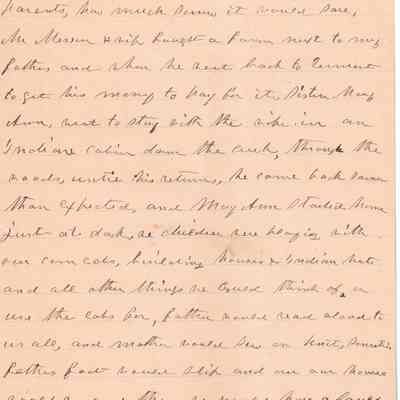 parents, how much sorrow it would save,
Mr Messen & wife bought a farm next to my
father and when he went back to Vermont
to get his money to pay for it, Sister Mary
Ann, went to stay with the wife in an
Indian cabin down the creek, through the
woods, until his return, he came back sooner
than expected, and Mary Ann started home
just at dark, we children were playing with
our corn cobs, building houses & Indian huts
and all other things we could think of, or
use the cobs for, father would read aloud to
us all, and mother would sew or knit, sometimes
fathers foot would slip and our houses